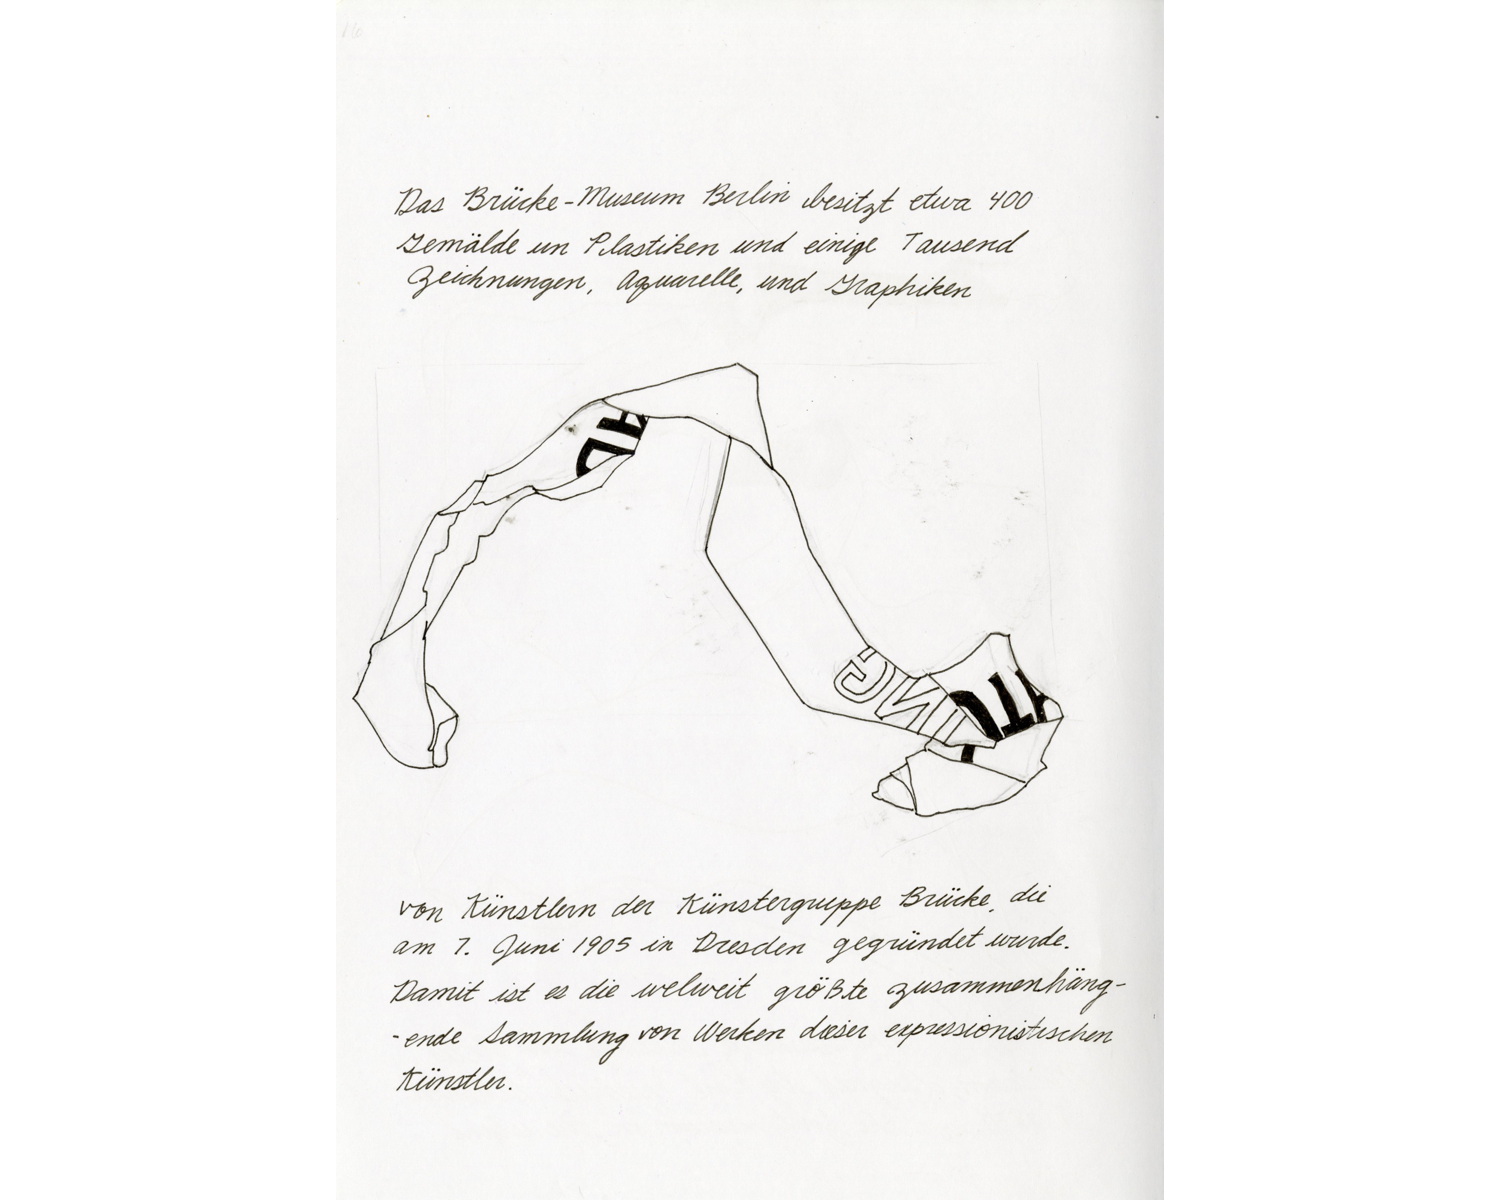 Das Brücke-Museum Berlin besitzt etwa 400
Gemälde un Plastiken und einige Tausend
Zeichnungen, Aquarelle, und Graphiken
UNG
von Künstlern der Künstergruppe Brücke, die
am 7. Juni 1905 in Dresden gegründet wurde.
Damit ist es die welweit größte zusammenhäng-
-ende Sammlung von Werken dieser expressionistischen
Künstler.